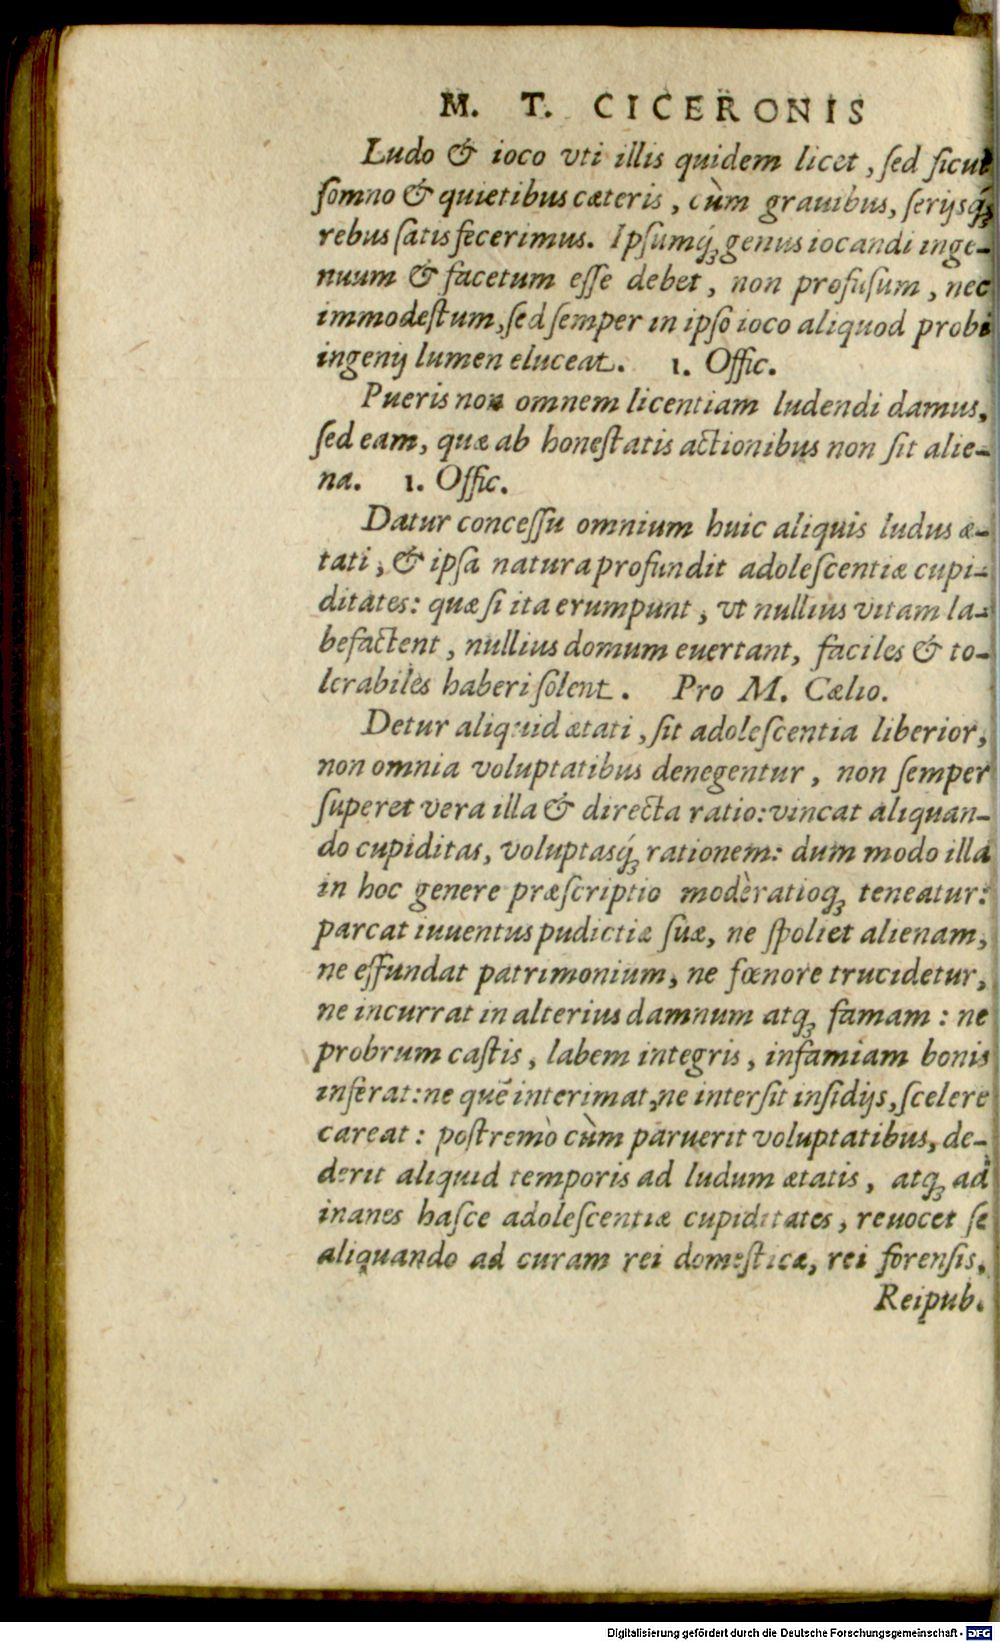 M. T. CICERONIS
Ludo & ioco vti illis quidem licet, ſed ſicut
ſomno & quietibus cæteris, cùm grauibus, ſerijsq́ꝫ
rebus ſatis fecerimus. Ipſumq́ꝫ genus iocandi inge-
nuum & facetum eſſe debet, non profuſum, nec
immodeſtum, ſed ſemper in ipſo ioco aliquod probi
ingenij lumen eluceat. 1. Offic.
Pueris non omnem licentiam ludendi damus,
ſed eam, quæ ab honeſtatis actionibus non ſit alie-
na. 1. Offic.
Datur conceſſu omnium huic aliquis ludus æ-
tati, & ipſa natura profundit adoleſcentiæ cupi-
ditates: quæ ſi ita erumpunt, vt nullius vitam la-
befactent, nullius domum euertant, faciles & to-
lerabiles haberi ſolent. Pro M. Cælio.
Detur aliquid ætati, ſit adoleſcentia liberior,
non omnia voluptatibus denegentur, non ſemper
ſuperet vera illa & directa ratio: vincat aliquan-
do cupiditas, voluptasq́ꝫ rationem: dum modo illa
in hoc genere præſcriptio moderatioqꝫ teneatur:
parcat iuuentus pudictiæ ſuæ, ne ſpoliet alienam,
ne effundat patrimonium, ne fœnore trucidetur,
ne incurrat in alterius damnum atqꝫ famam: ne
probrum caſtis, labem integris, infamiam bonis
inferat: ne quē interimat, ne interſit inſidijs, ſcelere
careat: poſtremò cùm paruerit voluptatibus, de-
derit aliquid temporis ad ludum ætatis, atqꝫ ad
inanes haſce adoleſcentiæ cupiditates, reuocet ſe
aliquando ad curam rei domeſticæ, rei forenſis,
Reipub.
Digitalisierung gefördert durch die Deutsche Forschungsgemeinschaft - DFG